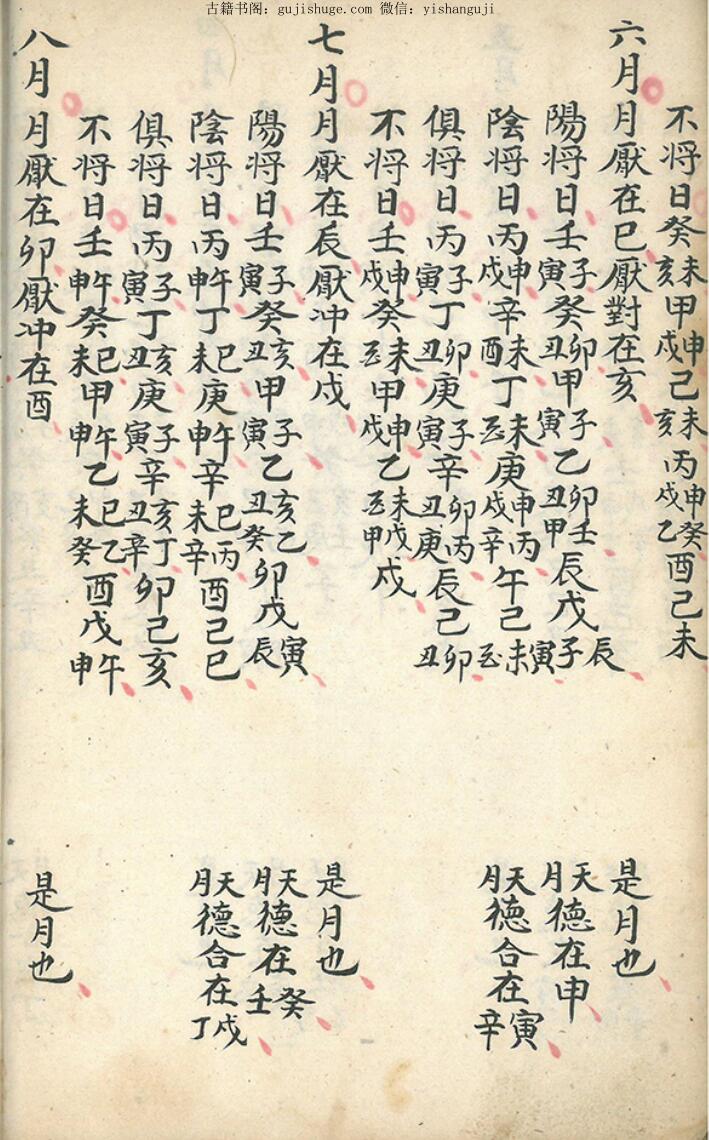 古籍书阁：gujishuge.com 微信：yishanguji
不将日癸未亥甲申戌己未亥丙申戌癸乙酉己未
六月月厭在巳厭對在亥 是月也
陽将日壬子寅癸卯丑甲子寅乙卯丑壬甲辰戊辰子寅 天月德在申
陰将日丙申戌辛未酉丁未巳庚申戌丙辛午己未巳 天月德合在寅辛
俱将日丙子寅丁卯丑庚子寅辛卯丑丙庚辰己卯丑
不将日壬申戌癸未巳甲申戌乙未巳戊甲戌
七月月厭在辰厭冲在戌 是月也
陽将日壬子寅癸亥丑甲子寅乙亥丑乙癸卯戊寅辰 天月德在癸壬
陰将日丙午申丁巳未庚午申辛巳未丙辛酉己巳 天月德合在戌丁
俱将日丙子寅丁亥丑庚子寅辛亥丑丁辛卯己亥
不将日壬午申癸巳未甲午申乙巳未乙癸酉戊午申
八月月厭在卯厭冲在酉 是月也